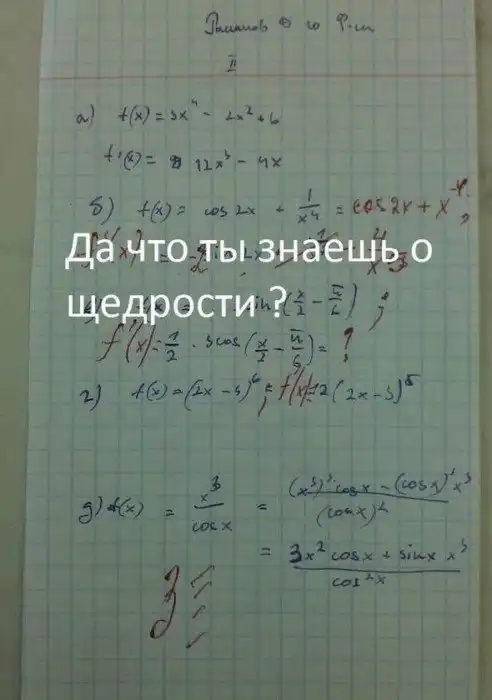 II
а) f(x) = 3x⁴ - 2x² + 6
f'(x) = 12x³ - 4x
б) f(x) = cos 2x + 1/x⁴ = cos 2x + x⁻⁴;
Да что ты знаешь о
щедрости ?
sin(x/2 - π/6) ;
f'(x) = 1/2 · 3cos(x/2 - π/6) = ?
г) f(x) = (2x - 3)⁶; f'(x) = 12(2x - 3)⁵
д) f(x) = x³/cosx = ((x³)' cosx - (cosx)' x³)/(cosx)²
= (3x² cosx + sinx x³)/cos²x
3